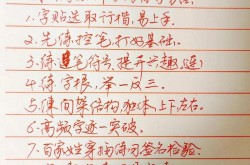 1、字贴选取行楷，易上手。
2、先练控笔，打好基础。
3、练笔符号，提升兴趣，
4、练字根，举一反三。
5、练间架结构，上下、左右。
6、高频字逐一突破。
7、百家姓穿插练习签名检验。